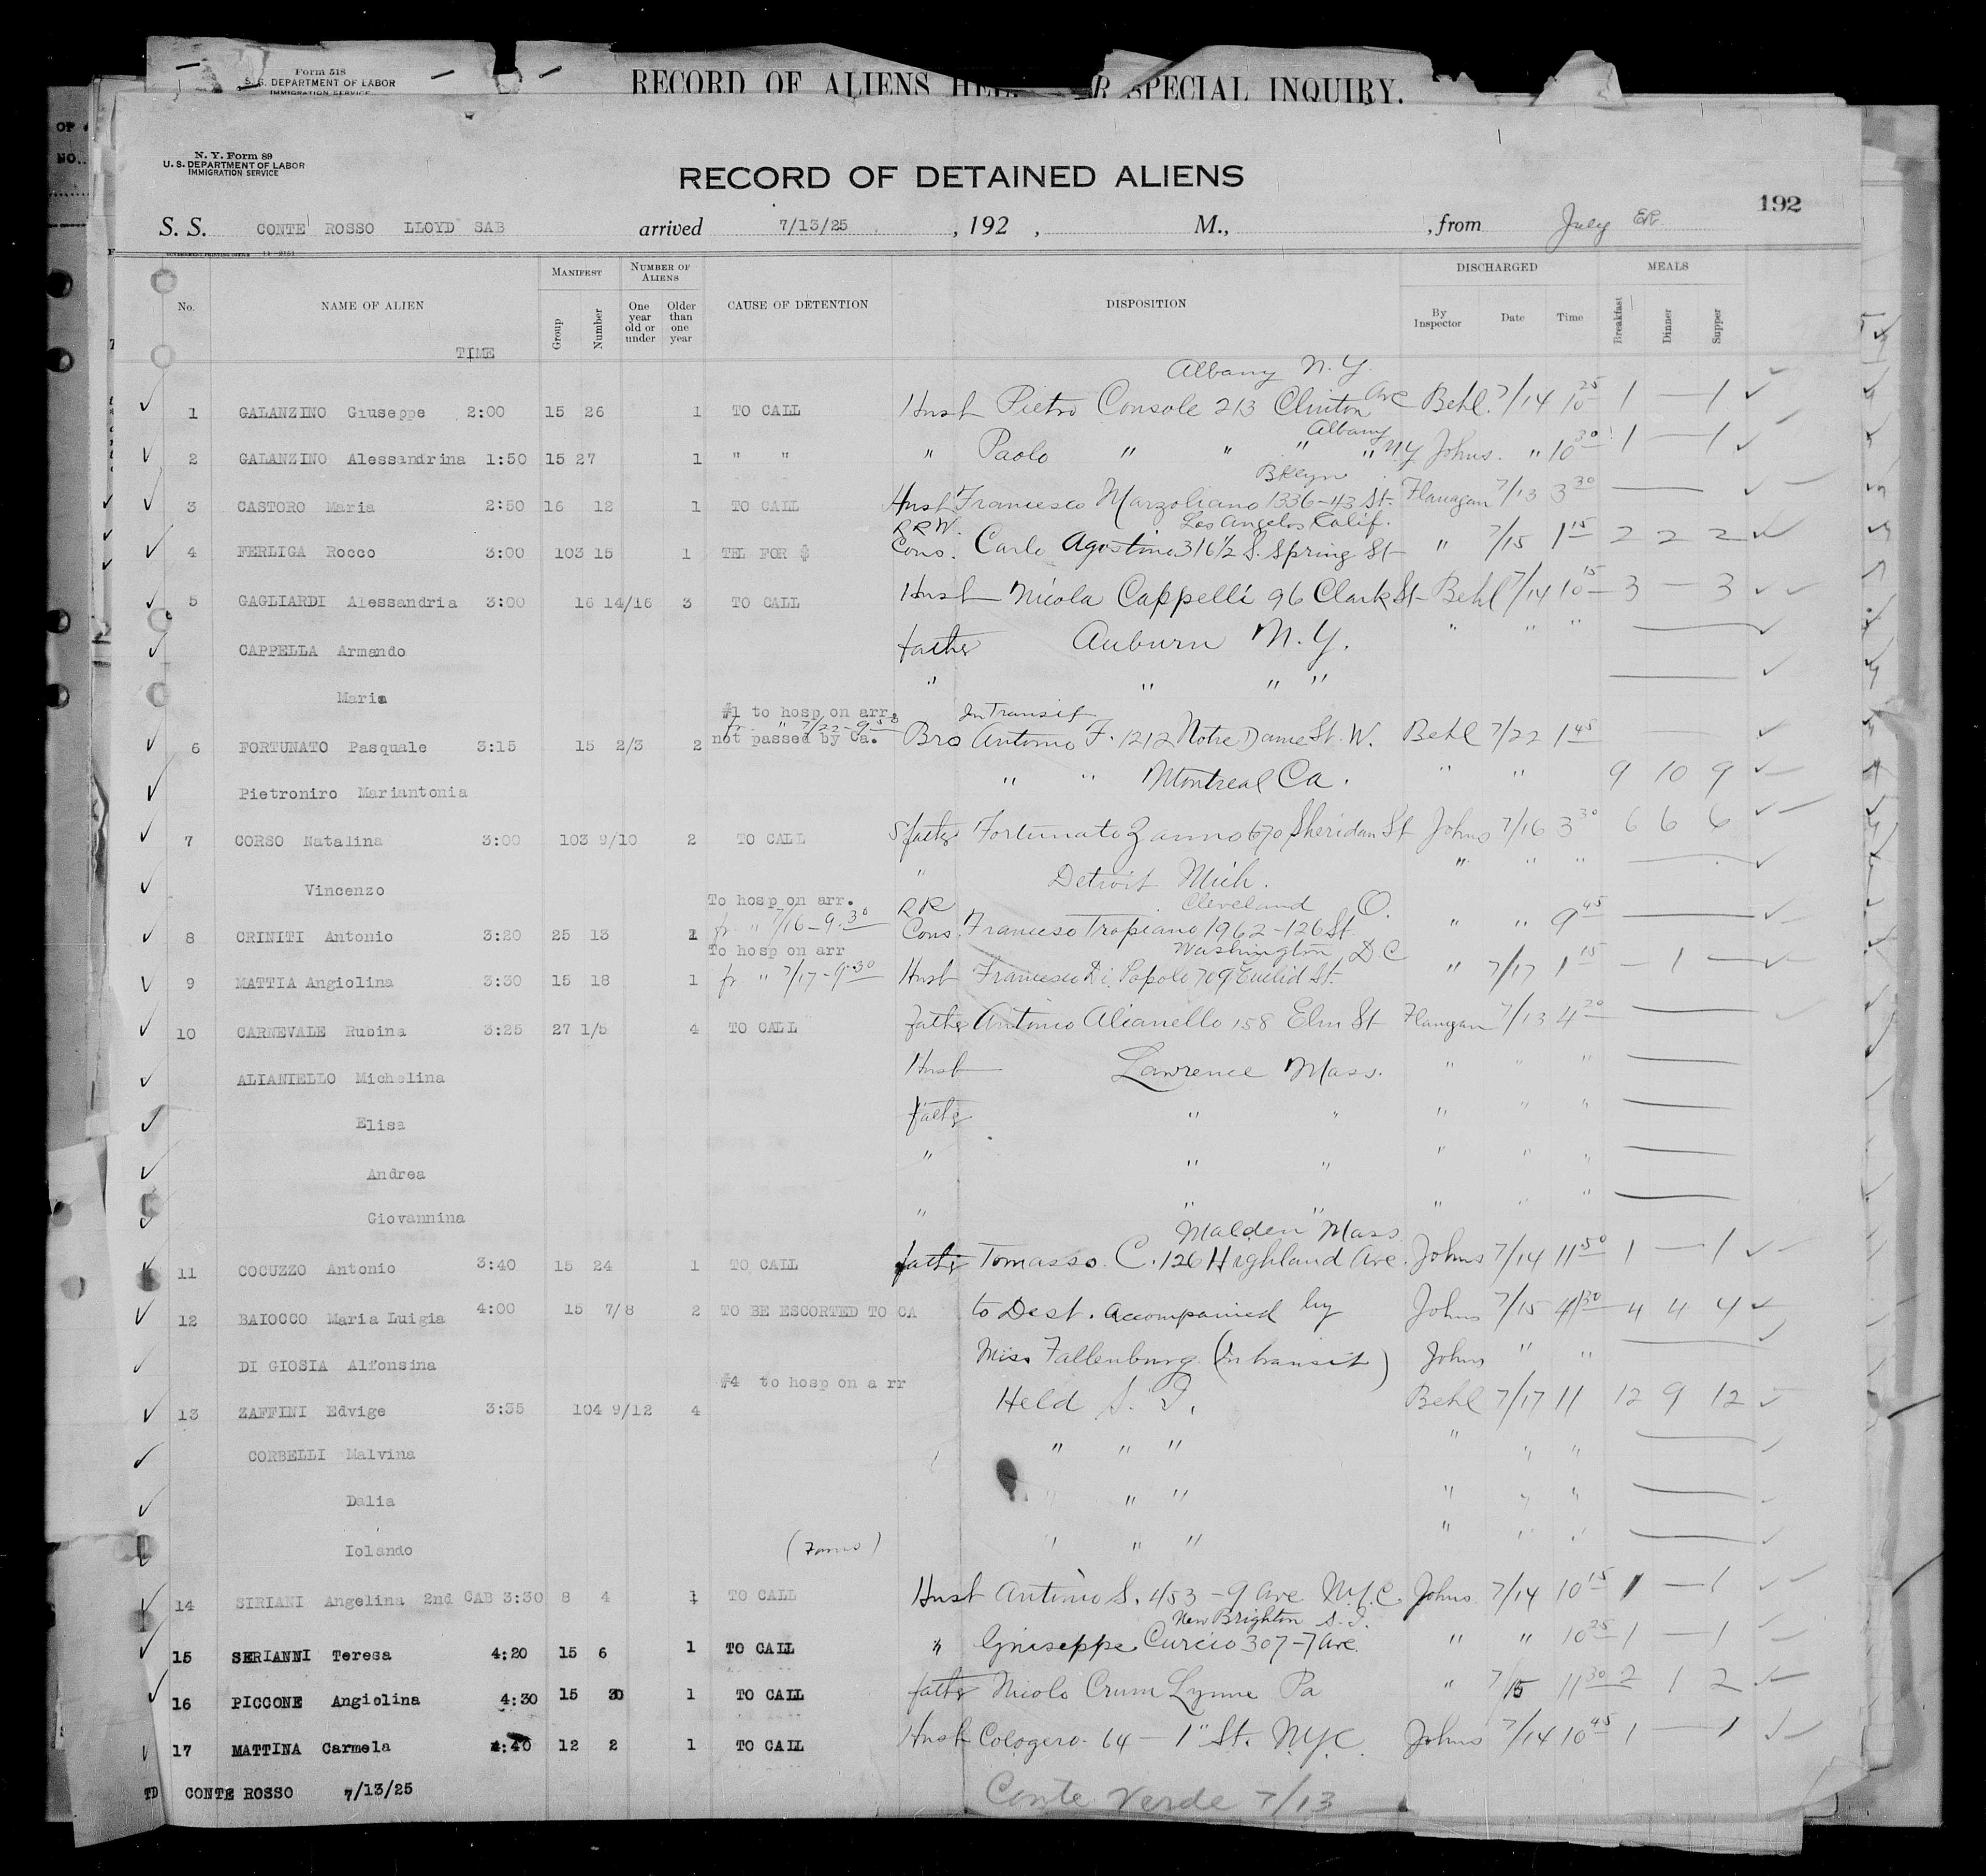 Form 518
S. DEPARTMENT OF LABOR
IMMIGRATION SERVICE
RECORD OF ALIENS SPECIAL INQUIRY.
OF
NO.
N. Y. Form 89
U. S. DEPARTMENT OF LABOR
IMMIGRATION SERVICE
RECORD OF DETAINED ALIENS
192
S. S. CONTE ROSSO LLOYD SAB arrived 7/13/25 , 192 , M., , from July ER
GOVERNMENT PRINTING OFFICE
No. NAME OF ALIEN TIME MANIFEST Group Number NUMBER OF ALIENS One year old or under Older than one year CAUSE OF DETENTION DISPOSITION DISCHARGED By Inspector Date Time MEALS Breakfast Dinner Supper
Albany N.Y.
1 GALANZINO Giuseppe 2:00 15 26 1 TO CALL Husb Pietro Console 213 Clinton Ave Behl. 7/14 10 25 1 — 1
Albany
2 GALANZINO Alessandrina 1:50 15 27 1 " " " Paolo " " " " NY Johns. " 10 30 1 — 1
Bklyn
3 CASTORO Maria 2:50 16 12 1 TO CALL Husb Francesco Marzoliano 1336-43 St. Flanagan 7/13 3 30 —
R R W. Los Angelos Calif.
4 FERLIGA Rocco 3:00 103 15 1 TEL FOR $ Cons. Carlo Agostino 316 1/2 S. Spring St " 7/15 1 15 2 2 2
5 GAGLIARDI Alessandria 3:00 16 14/16 3 TO CALL Husb Nicola Cappelli 96 Clark St Behl 7/14 10 15 3 — 3
CAPPELLA Armando father Auburn N.Y. " " " —
Maria " " " " —
#1 to hosp on arr. In Transit
fr " 7/22-9 50
6 FORTUNATO Pasquale 3:15 15 2/3 2 not passed by Ca. Bro Antonio F. 1212 Notre Dame St. W. Behl 7/22 1 45 —
Pietroniro Mariantonia " " Montreal Ca. " " 9 10 9
7 CORSO Natalina 3:00 103 9/10 2 TO CALL S father Fortunato Zanno 670 Sheridan St Johns 7/16 3 30 6 6 6
Vincenzo " Detroit Mich. " " " —
To hosp on arr. R R Cleveland O.
8 CRINITI Antonio 3:20 25 13 1 fr " 7/16-9.30 Cons. Francesco Tropiano 1962-126 St. " " 9 45 —
To hosp on arr Washington D C
9 MATTIA Angiolina 3:30 15 18 1 fr " 7/17-9.30 Husb Francesco Di Popolo 709 Euclid St. " 7/17 1 15 — 1 —
10 CARNEVALE Rubina 3:25 27 1/5 4 TO CALL Father Antonio Alianello 158 Elm St Flanagan 7/13 4 20 —
ALIANIELLO Michelina Husb Lawrence Mass. " " " —
Elisa father " " " " " —
Andrea " " " " " " —
Giovannina " " " " " " —
Malden Mass
11 COCUZZO Antonio 3:40 15 24 1 TO CALL father Tomasso C. 126 Highland Ave. Johns 7/14 11 50 1 — 1
12 BAIOCCO Maria Luigia 4:00 15 7/8 2 TO BE ESCORTED TO CA to Dest. Accompanied by Johns 7/15 4 30 4 4 4
DI GIOSIA Alfonsina Miss Fallenburg (In transit) Johns " " —
#4 to hosp on a rr
13 ZAFFINI Edvige 3:35 104 9/12 4 Held S. I. Behl 7/17 11 12 9 12
CORBELLI Malvina " " " " " " —
Dalia " " " " " " —
Iolando " " " " " " —
14 SIRIANI Angelina 2nd CAB 3:30 8 4 1 TO CALL Husb Antonio S. 453 - 9 Ave N.Y.C. Johns 7/14 10 15 1 — 1
New Brighton S. I.
15 SERIANNI Teresa 4:20 15 6 1 TO CALL " Giuseppe Curcio 307-7 Ave. " " 10 25 1 — 1
16 PICCONE Angiolina 4:30 15 30 1 TO CALL father Nicolo Crum Lynne Pa " 7/15 11 30 2 1 2
17 MATTINA Carmela 4:40 12 2 1 TO CALL Husb Cologero 64 - 1" St. N.Y.C. Johns 7/14 10 45 1 — 1
TD CONTE ROSSO 7/13/25 Conte Verde 7/13